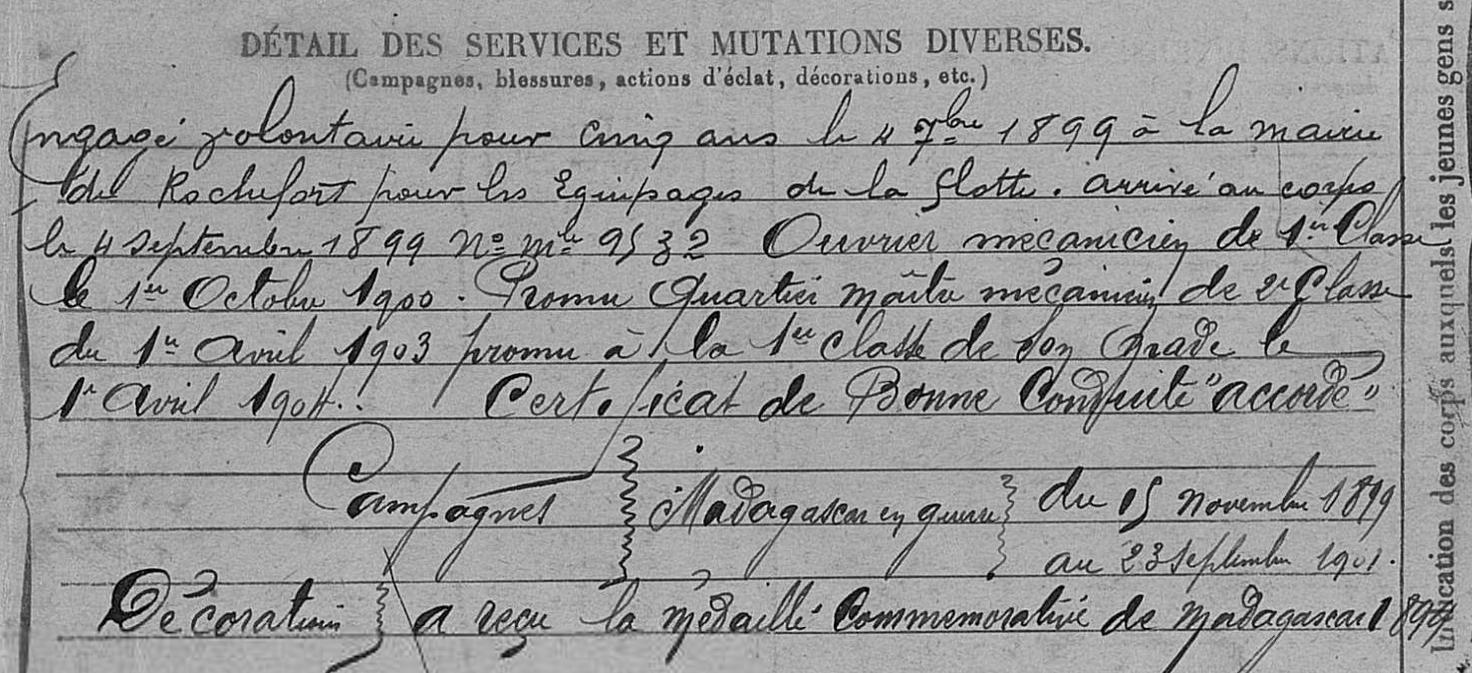 DÉTAIL DES SERVICES ET MUTATIONS DIVERSES.
(Campagnes, blessures, actions d'éclat, décorations, etc.)
Engagé volontaire pour cinq ans le 4 7bre 1899 à la mairie
de Rochefort pour les Equipages de la flotte. arrivé au corps
le 4 Septembre 1899 No mle 9532 Ouvrier mécanicien de 1re Classe
le 1er Octobre 1900. Promu Quartier Maître mécanicien de 2e Classe
du 1er Avril 1903 promu à la 1re classe de son grade le
1r Avril 1904. Certificat de Bonne Conduite "accordé"
Campagnes Madagascar en guerre du 15 novembre 1899
au 23 Septembre 1901.
Décoration a reçu la médaille Commémorative de Madagascar
les jeunes gens
Indication des corps auxquels